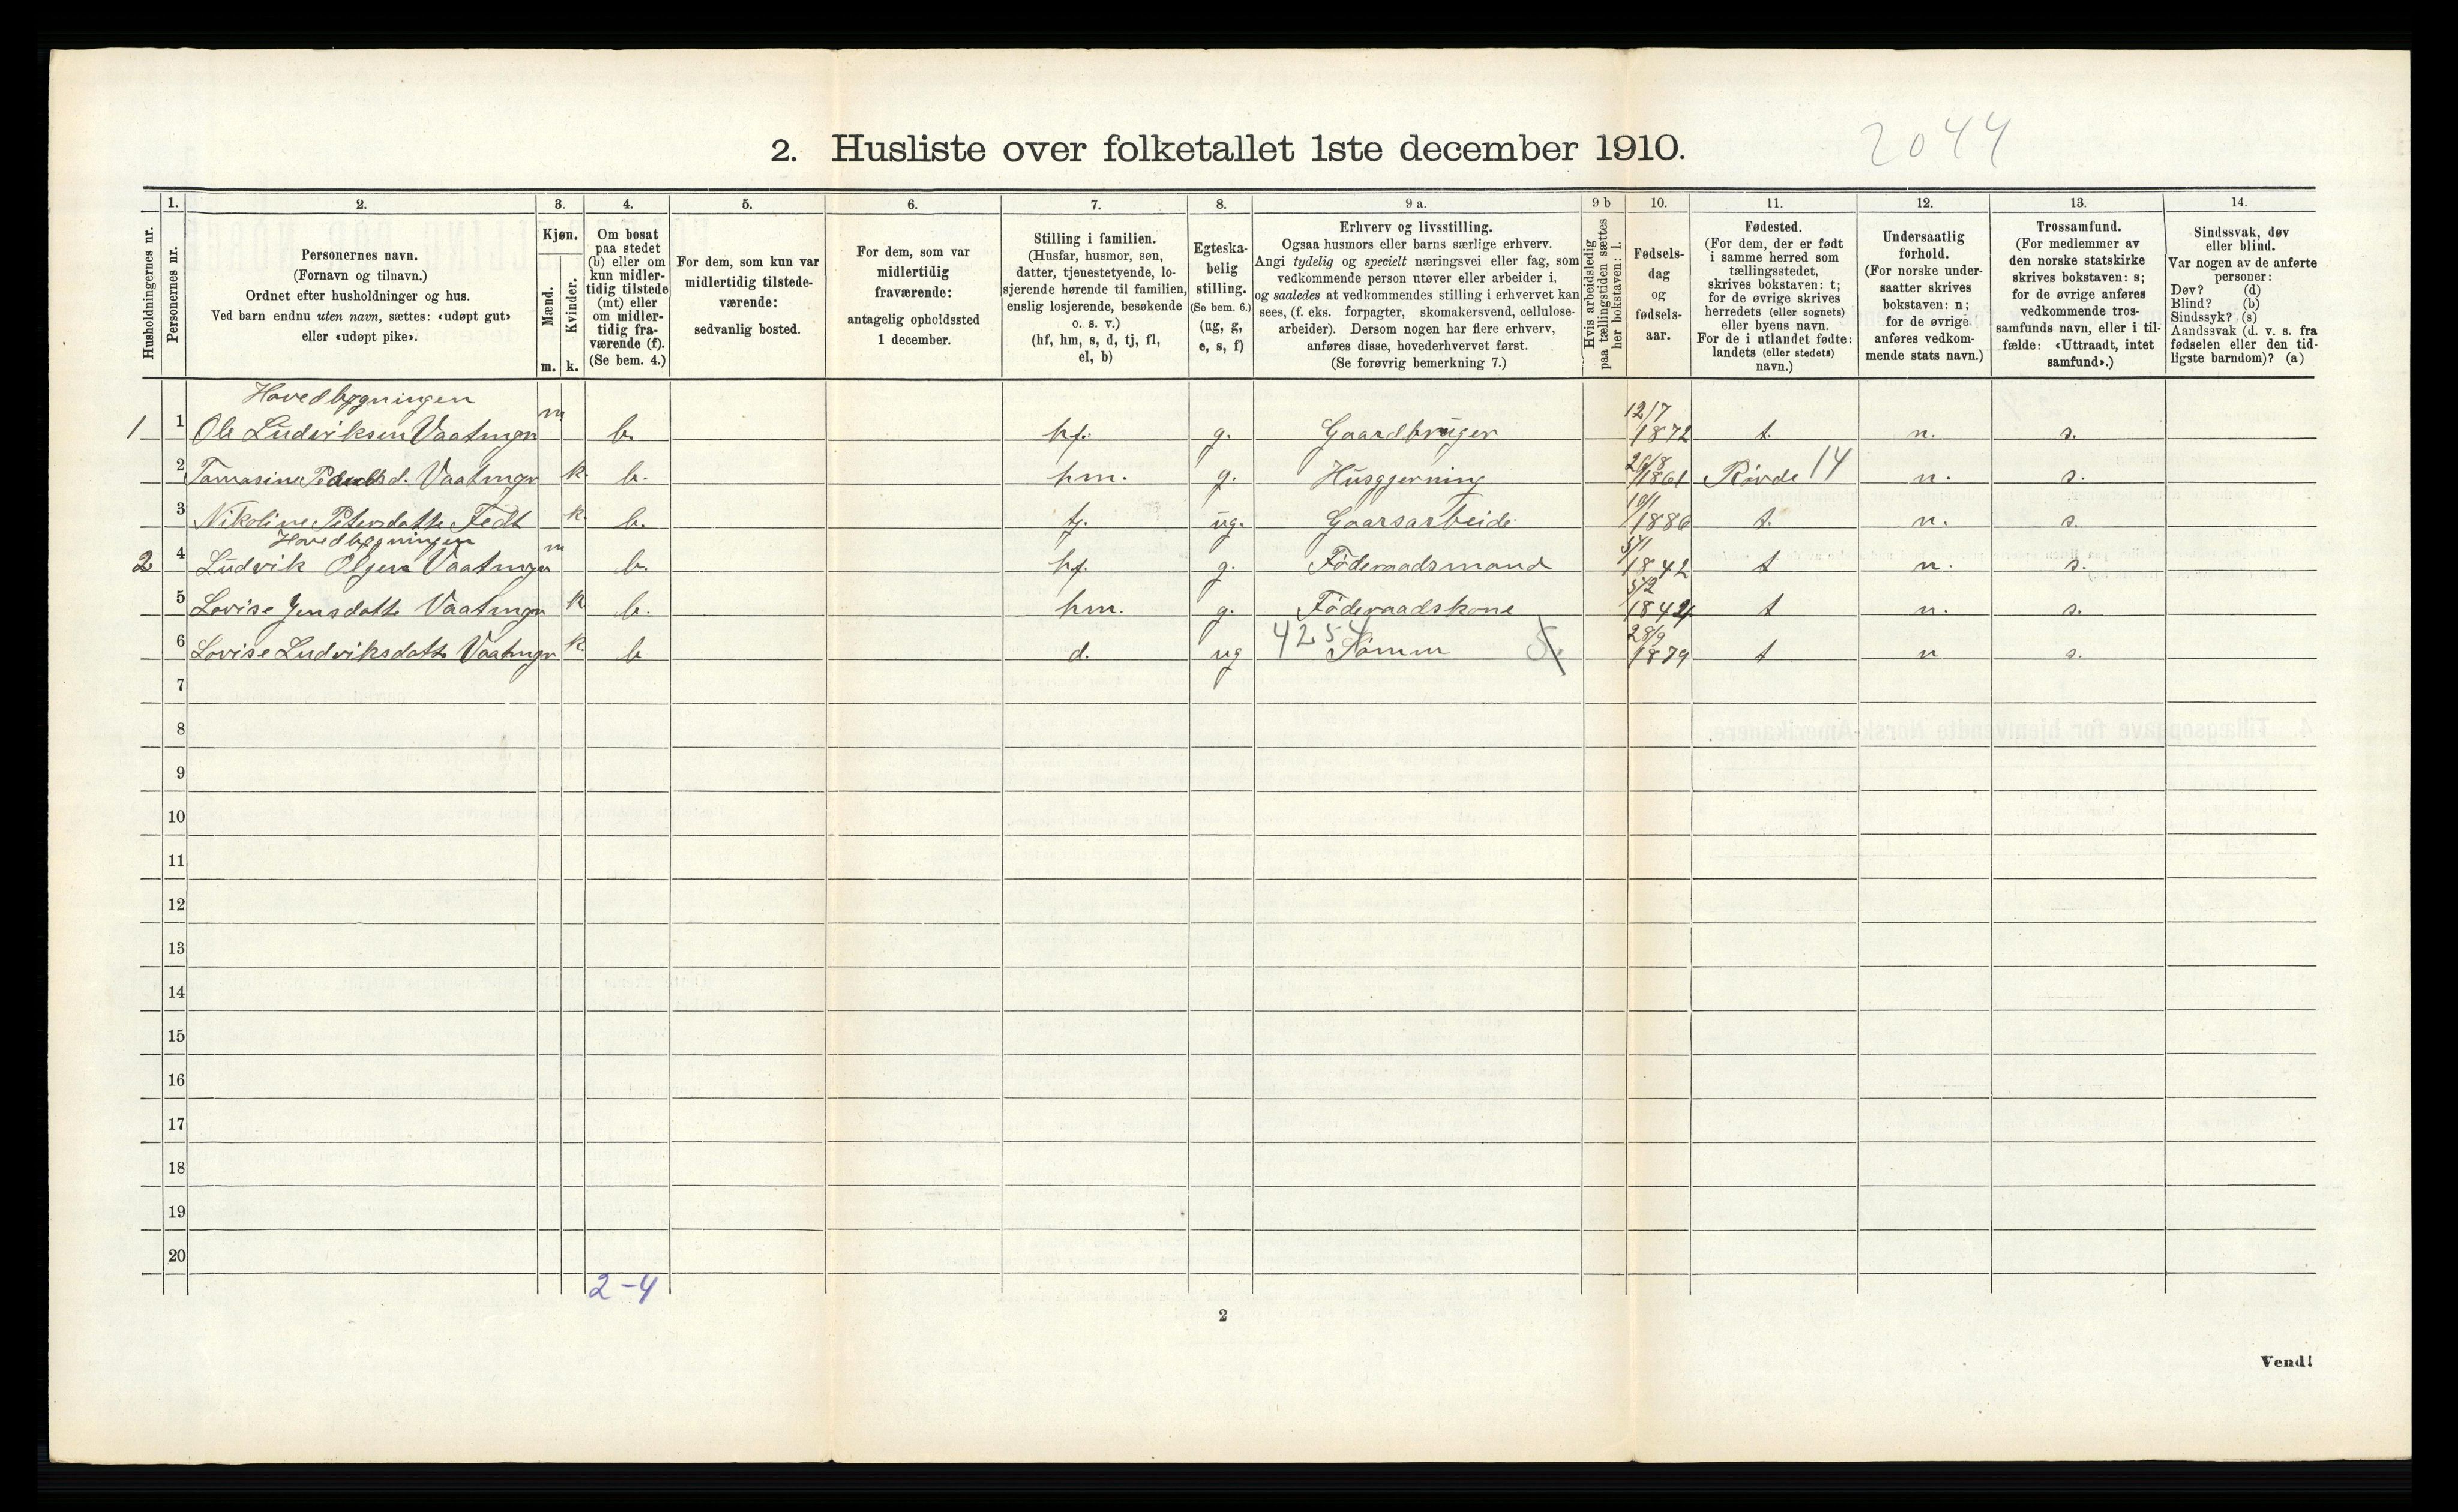 2. Husliste over folketallet 1ste december 1910.
2044
Husholdningernes nr.
1.
Personernes nr.
2.
Personernes navn.
(Fornavn og tilnavn.)
Ordnet efter husholdninger og hus.
Ved barn endnu uten navn, sættes: «udøpt gut»
eller «udøpt pike».
3.
Kjøn.
Mænd.
Kvinder.
m. k.
4.
Om bosat
paa stedet
(b) eller om
kun midler-
tidig tilstede
(mt) eller
om midler-
tidig fra-
værende (f).
(Se bem. 4.)
5.
For dem, som kun var
midlertidig tilstede-
værende:
sedvanlig bosted.
6.
For dem, som var
midlertidig
fraværende:
antagelig opholdssted
1 december.
7.
Stilling i familien.
(Husfar, husmor, søn,
datter, tjenestetyende, lo-
sjerende hørende til familien,
enslig losjerende, besøkende
o. s. v.)
(hf, hm, s, d, tj, fl,
el, b)
8.
Egteska-
belig
stilling.
(Se bem. 6.)
(ug, g,
e, s, f)
9 a.
Erhverv og livsstilling.
Ogsaa husmors eller barns særlige erhverv.
Angi tydelig og specielt næringsvei eller fag, som
vedkommende person utøver eller arbeider i,
og saaledes at vedkommendes stilling i erhvervet kan
sees, (f. eks. forpagter, skomakersvend, cellulose-
arbeider). Dersom nogen har flere erhverv,
anføres disse, hovederhvervet først.
(Se forøvrig bemerkning 7.)
9 b
Hvis arbeidsledig
paa tællingstiden sættes
her bokstaven: l.
10.
Fødsels-
dag
og
fødsels-
aar.
11.
Fødested.
(For dem, der er født
i samme herred som
tællingsstedet,
skrives bokstaven: t;
for de øvrige skrives
herredets (eller sognets)
eller byens navn.
For de i utlandet fødte:
landets (eller stedets)
navn.)
12.
Undersaatlig
forhold.
(For norske under-
saatter skrives
bokstaven: n;
for de øvrige
anføres vedkom-
mende stats navn.)
13.
Trossamfund.
(For medlemmer av
den norske statskirke
skrives bokstaven: s;
for de øvrige anføres
vedkommende tros-
samfunds navn, eller i til-
fælde: «Uttraadt, intet
samfund».)
14.
Sindssvak, døv
eller blind.
Var nogen av de anførte
personer:
Døv? (d)
Blind? (b)
Sindssyk? (s)
Aandssvak (d. v. s. fra
fødselen eller den tid-
ligste barndom)? (a)
Hovedbygningen
1 1 Ole Ludviksen Vaatmyr m b. hf. g. Gaardbruger 12/7 1872 t. n. s.
2 Tomasine d. Vaatmyr k. b. hm. g. Husgjerning 26/8 1861 Røvde 14 n. s.
3 Nikoline Petersdatte Fedt k. b. tj. ug. Gaarsarbeide 10/1 1886 t. n. s.
Hovedbygningen
2 4 Ludvik Olsen Vaatmyr m b. hf. g. Föderaadsmand 5/1 1842 t n. s.
5 Lovise Jensdatte Vaatmyr k b. hm. g. Föderaadskone 5/2 1842 t n. s.
6 Lovise Ludviksdatte Vaatmyr k. b d. ug 4254 Sömm 5. 28/9 1879 t n s.
7
8
9
10
11
12
13
14
15
16
17
18
19
20
2-4
2
Vend!